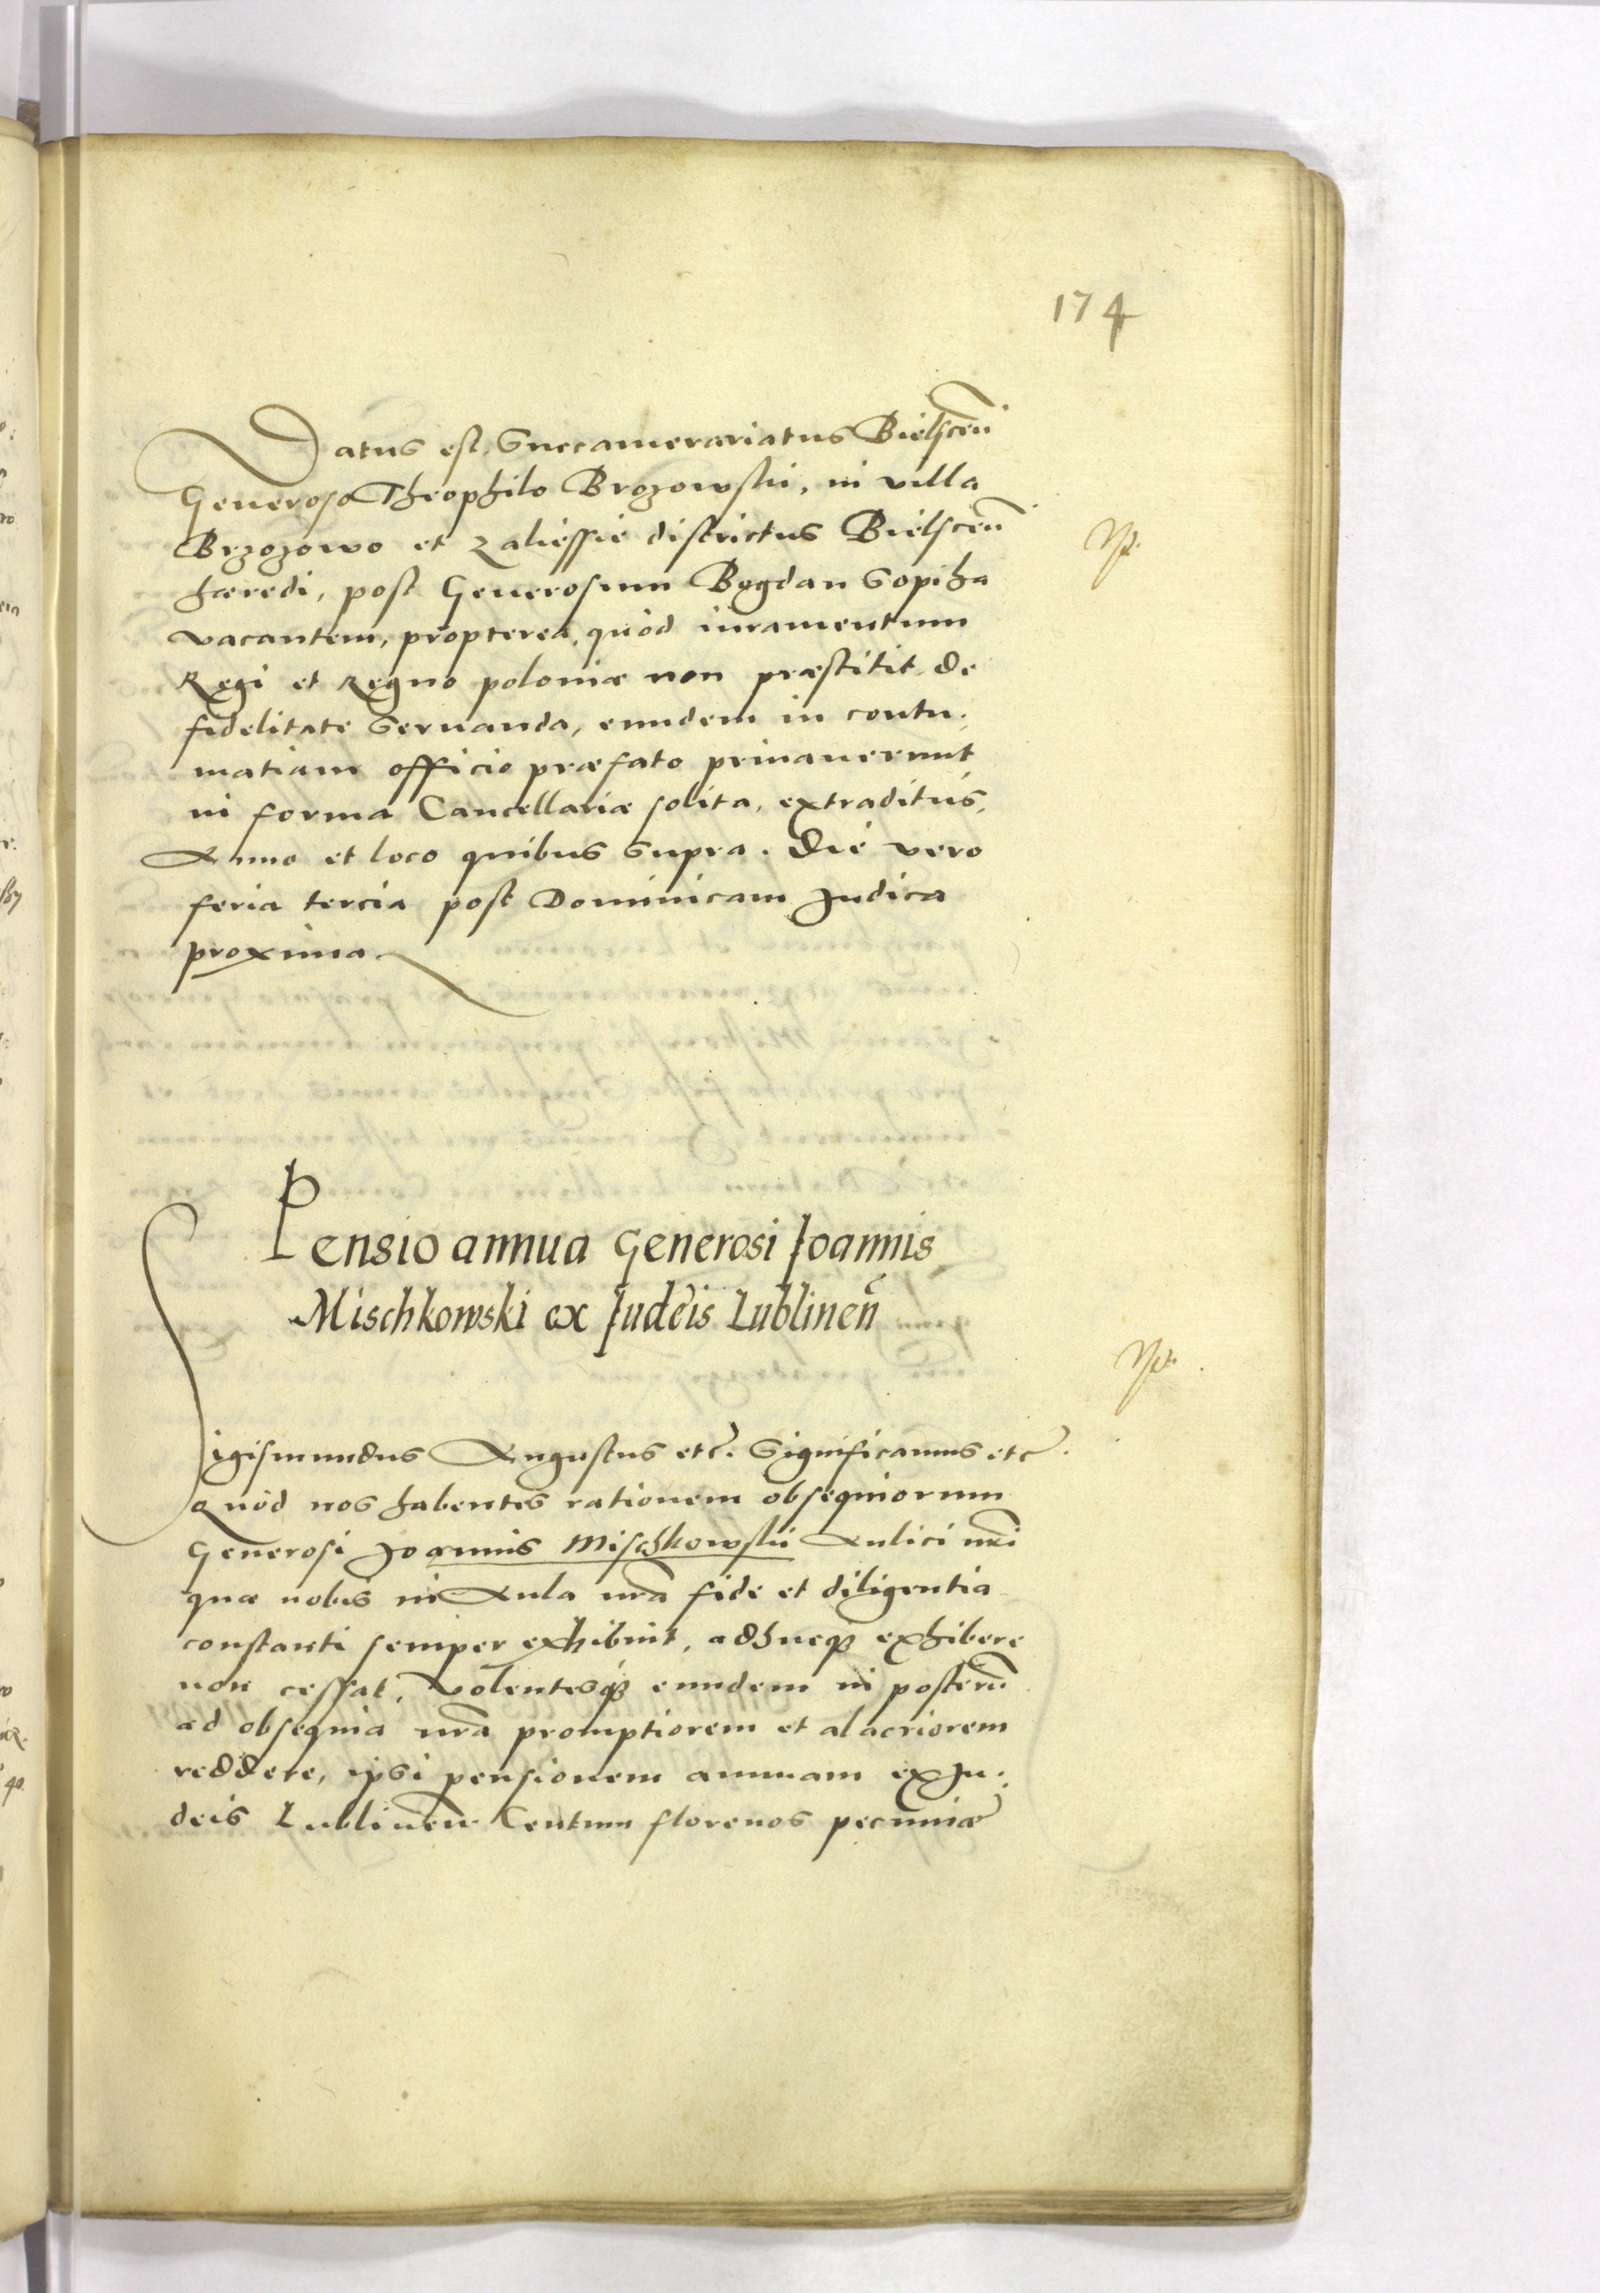 174
Datus est Succamerariatus Bielscen̄
Generoso Theophilo Brozowski, in villa
Brzozowo et Zaliessie districtus Bielscen̄
hæredi, post Generosum Bogdan Sopiha
vacantem, propterea, quòd iuramentum
Regi et Regno poloniæ non præstitit de
fidelitate seruanda, eundem in contu:
matiam officio præfato priuauerunt
in forma Cancellariæ solita, extraditus,
Anno et loco quibus supra. Die vero
feria tercia post Dominicam Judica
proxima.
Pensio annua Generosi Joannis
Mischkowski ex Judeis Lublinen̄
Sigismundus Augustus etc̄. Significamus etc̄.
Quòd nos habentes rationem obsequiorum
Generosi Joannis Mischkowskii Aulici nr̄i
quæ nobis in Aula nr̄a fide et diligentia
constanti semper exhibuit, adhucq̄ȝ exhibere
non cessat, Volentesq̄ȝ eundem in posterū
ad obsequia nr̄a promptiorem et alacriorem
reddere, ipsi pensionem annuam ex Ju:
deis Lublinen̄ Centum florenos pecuniæ